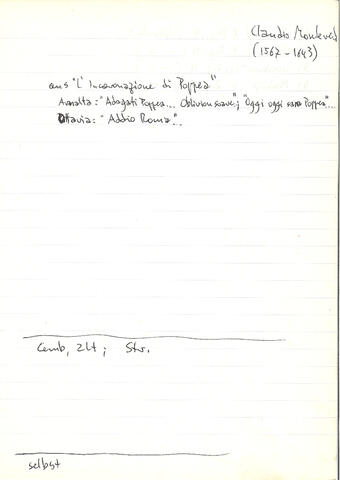 Claudio Monteverd
(1567 - 1643)
aus "L' Incoronazione di Poppea"
Arnalta: "Adagati Poppea... Oblivion soave"; "Oggi oggi sarà Poppea"...
Ottavia: "Addio Roma"..
Cemb, 2 Lt ; Str.
selbst